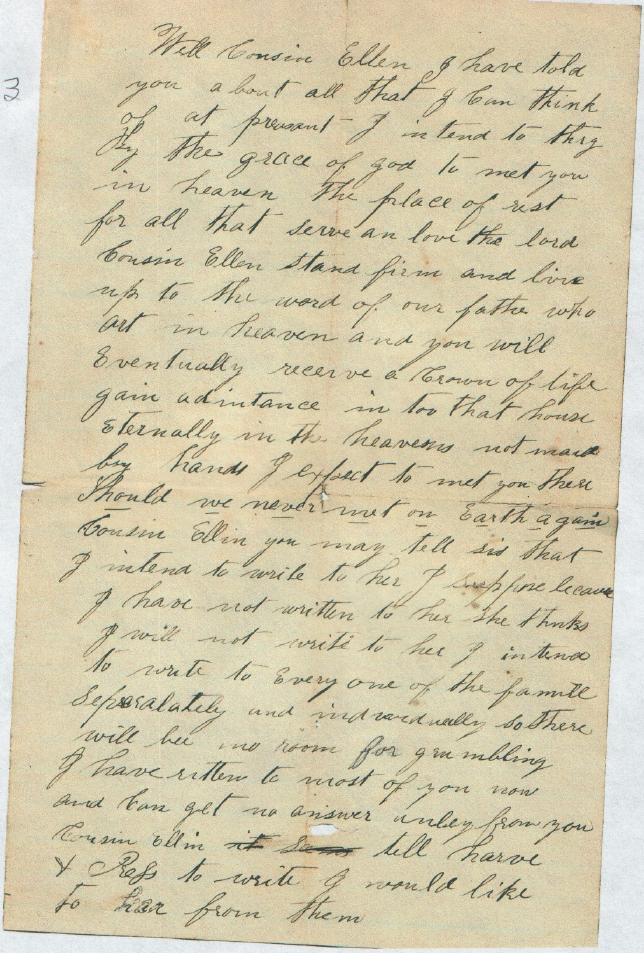 3
Well Cousin Ellen I have told
you about all that I Can think
of at presant I intend to thry
By the grace of god to met you
in heaven the place of rest
for all that serve an love the lord
Cousin Ellen stand firm and live
up to the word of our father who
art in heaven and you will
Eventually receive a Crown of life
gain adintance in too that house
Eternally in the heavens not maid
by hands I expect to met you there
Should we never met on Earth again
Cousin Ellin you may tell sis that
I intend to write to her I suppine becaus
I have not written to her she thinks
I will not write to her I intend
to write to Every one of the famill
Seperalately and indavidually so there
will bee no room for grumbling
I have ritten to most of you now
and Can get no answer unley from you
Cousin Ellin it tell harve
& to write I would like
to hear from them